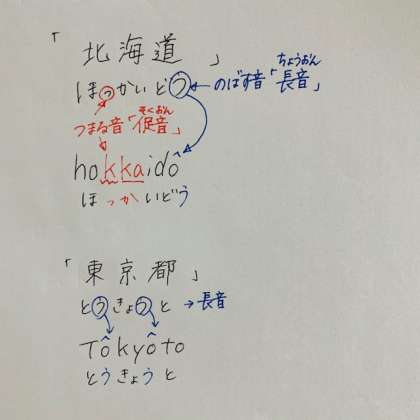 「北海道」
ちょうおん
ほっかいどう ← のばす音「長音」
そくおん
つまる音「促音」
hokkaidô
ほっかいどう
「東京都」
とうきょうと → 長音
Tôkyôto
とうきょうと